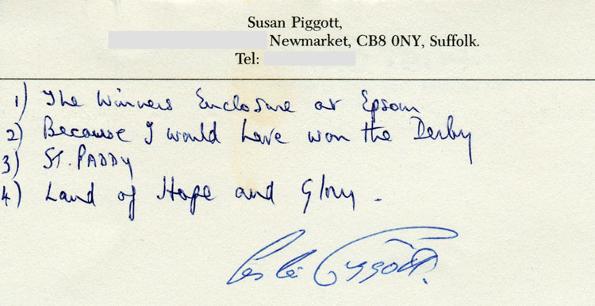 Susan Piggott,
Newmarket, CB8 0NY, Suffolk.
Tel:
1) The Winners Enclosure at Epsom
2) Because I would have won the Derby
3) ST. PADDY
4) Land of Hope and Glory.
Lester Piggott.